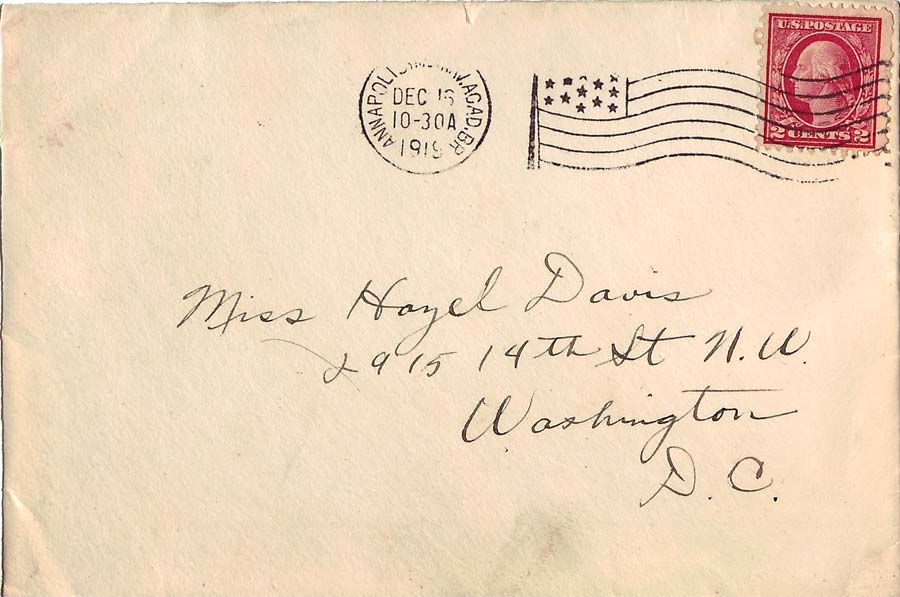 U.S. POSTAGE
2 CENTS 2
ANNAPOLIS ACAD. BR.
DEC
10-30A
Miss Hazel Davis
2915 14th St N.W.
Washington
D.C.